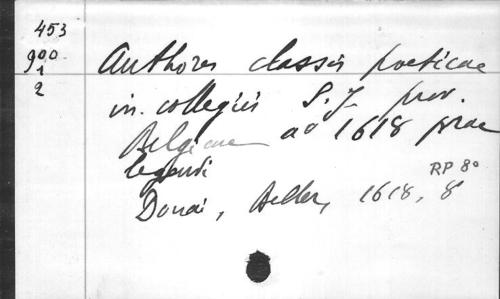 453
900
1
2
Authores classis poeticae
in collegiis S.J. prov.
Belgicae aº 1618 prae
legendi
RP 8º
Douai, Beller, 1618, 8